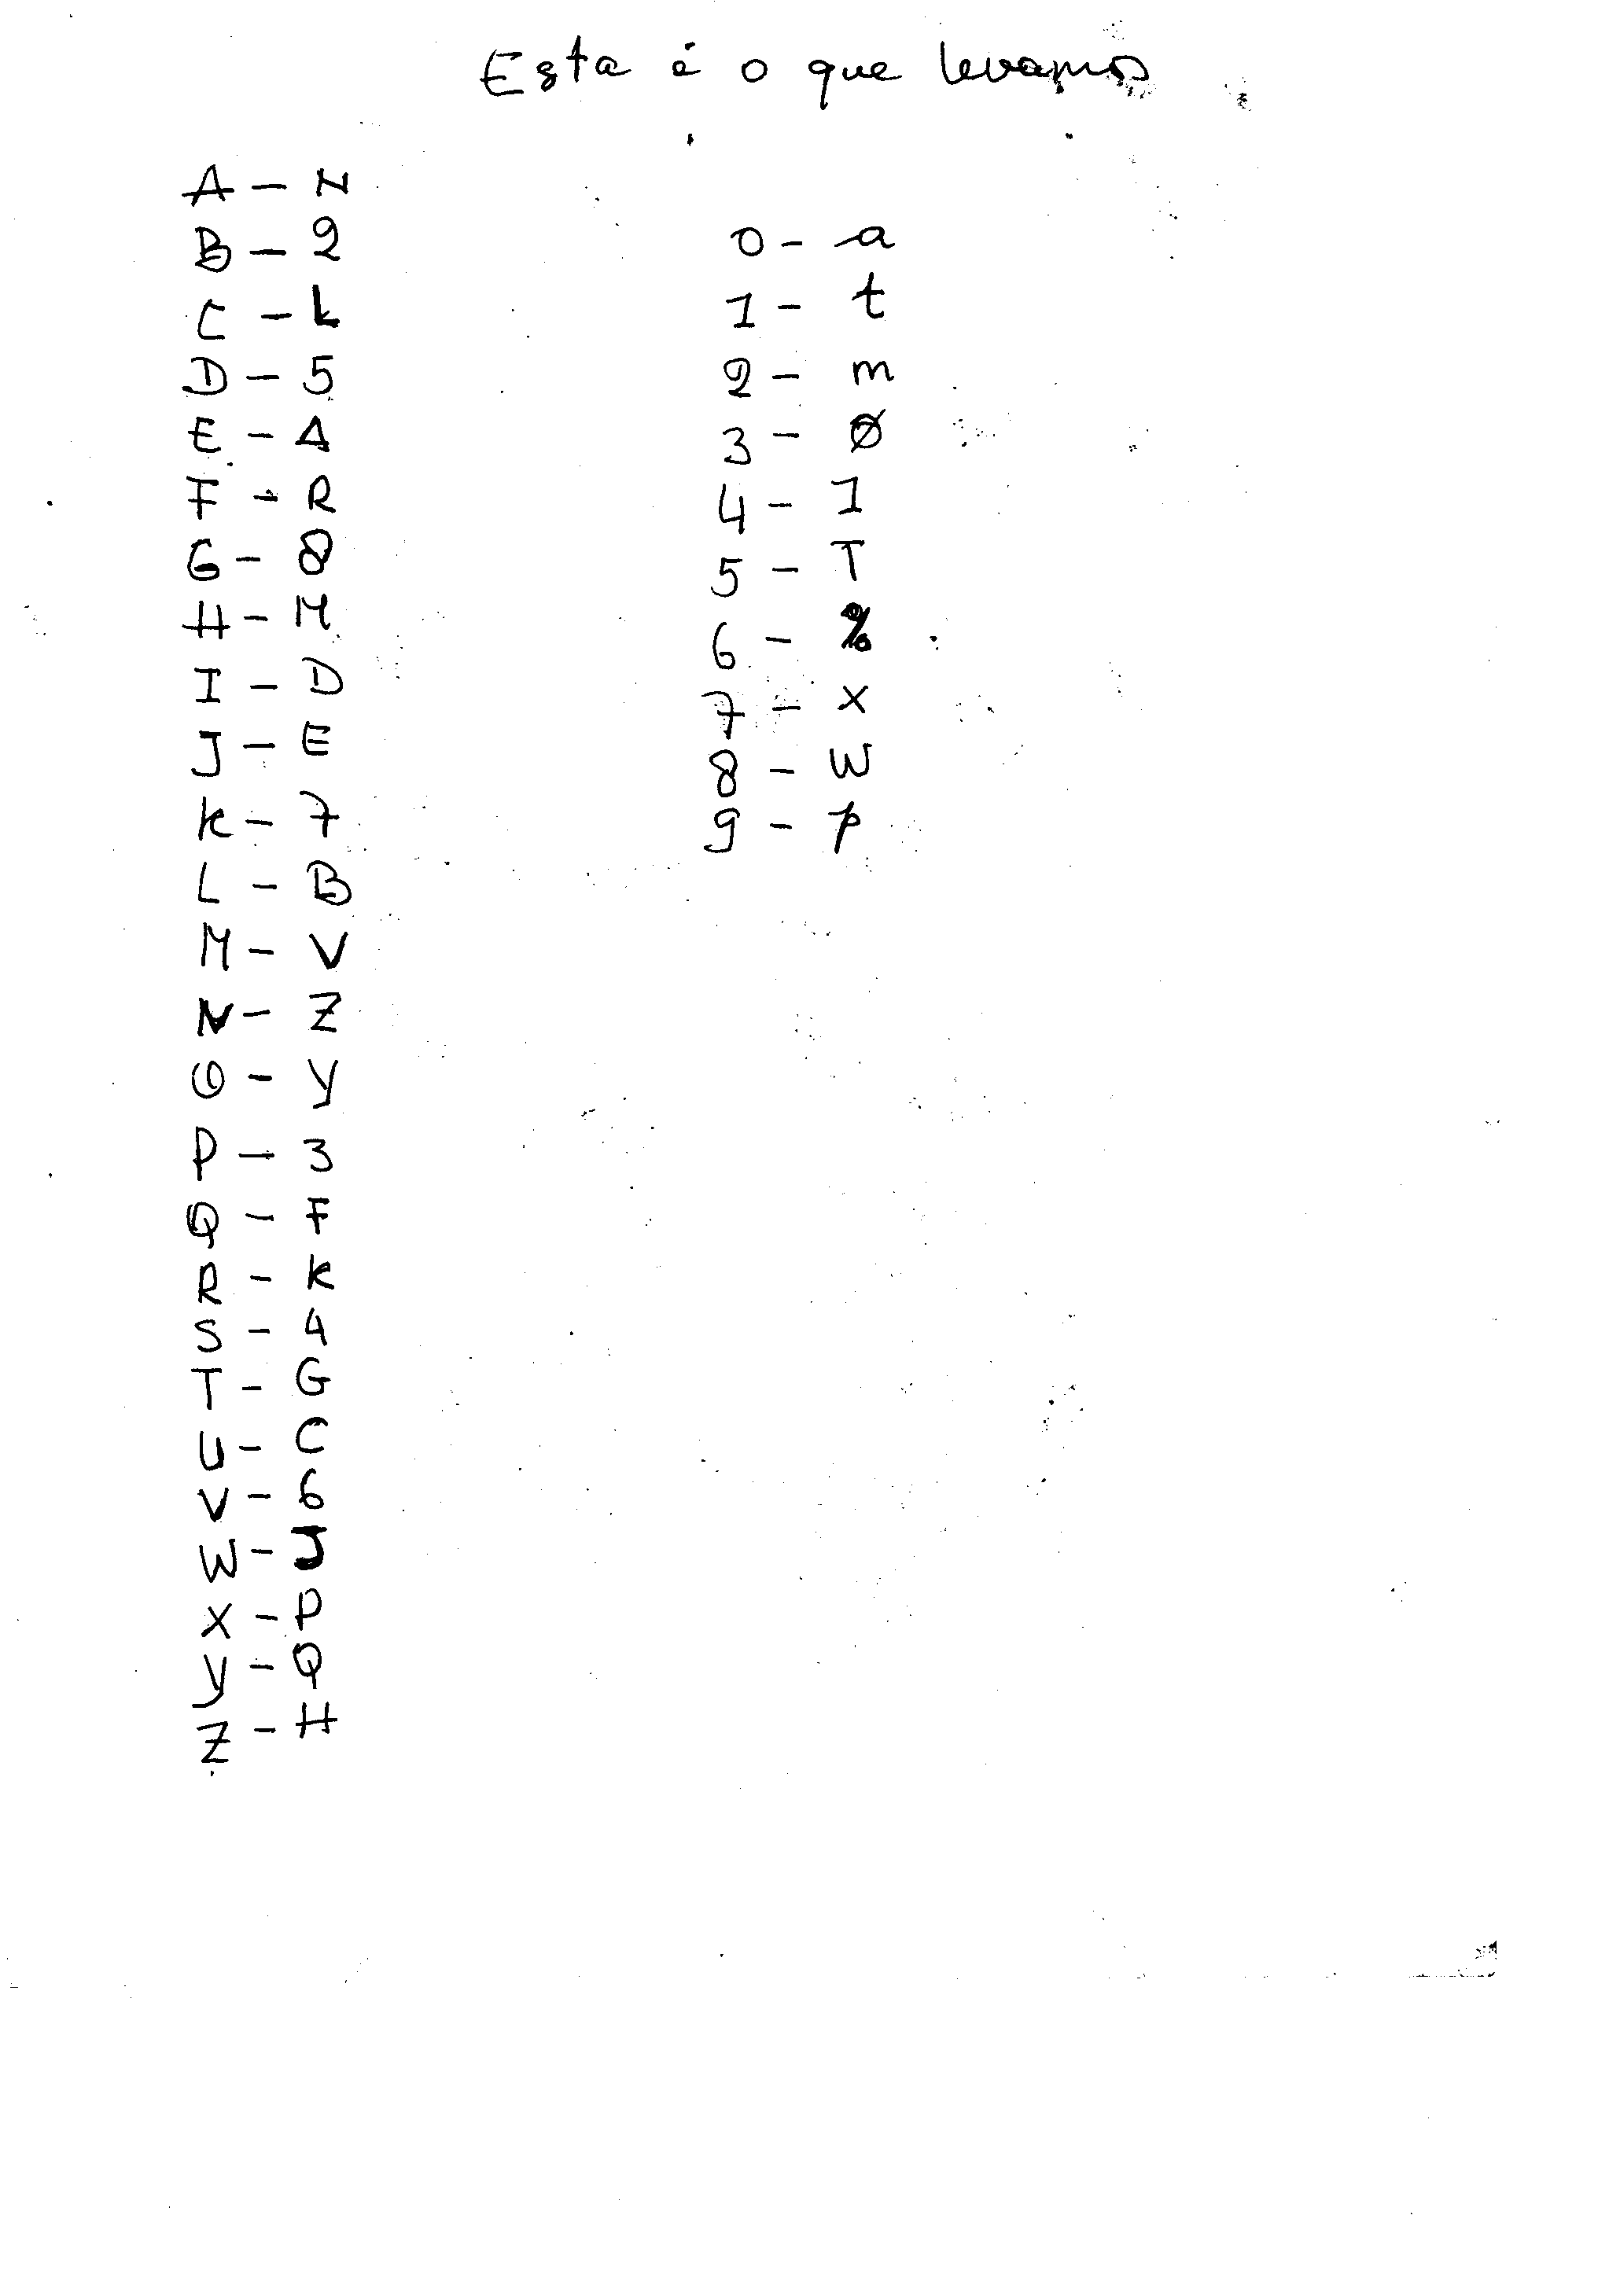 Esta é o que levamos
A - N
B - 2
C - L
D - 5
E - A
F - R
G - 8
H - M
I - D
J - E
K - 7
L - B
M - V
N - Z
O - Y
P - 3
Q - F
R - K
S - 4
T - G
U - C
V - 6
W - J
X - P
Y - Q
Z - H
0 - a
1 - t
2 - m
3 - Ø
4 - 1
5 - T
6 - %
7 - x
8 - W
9 - p